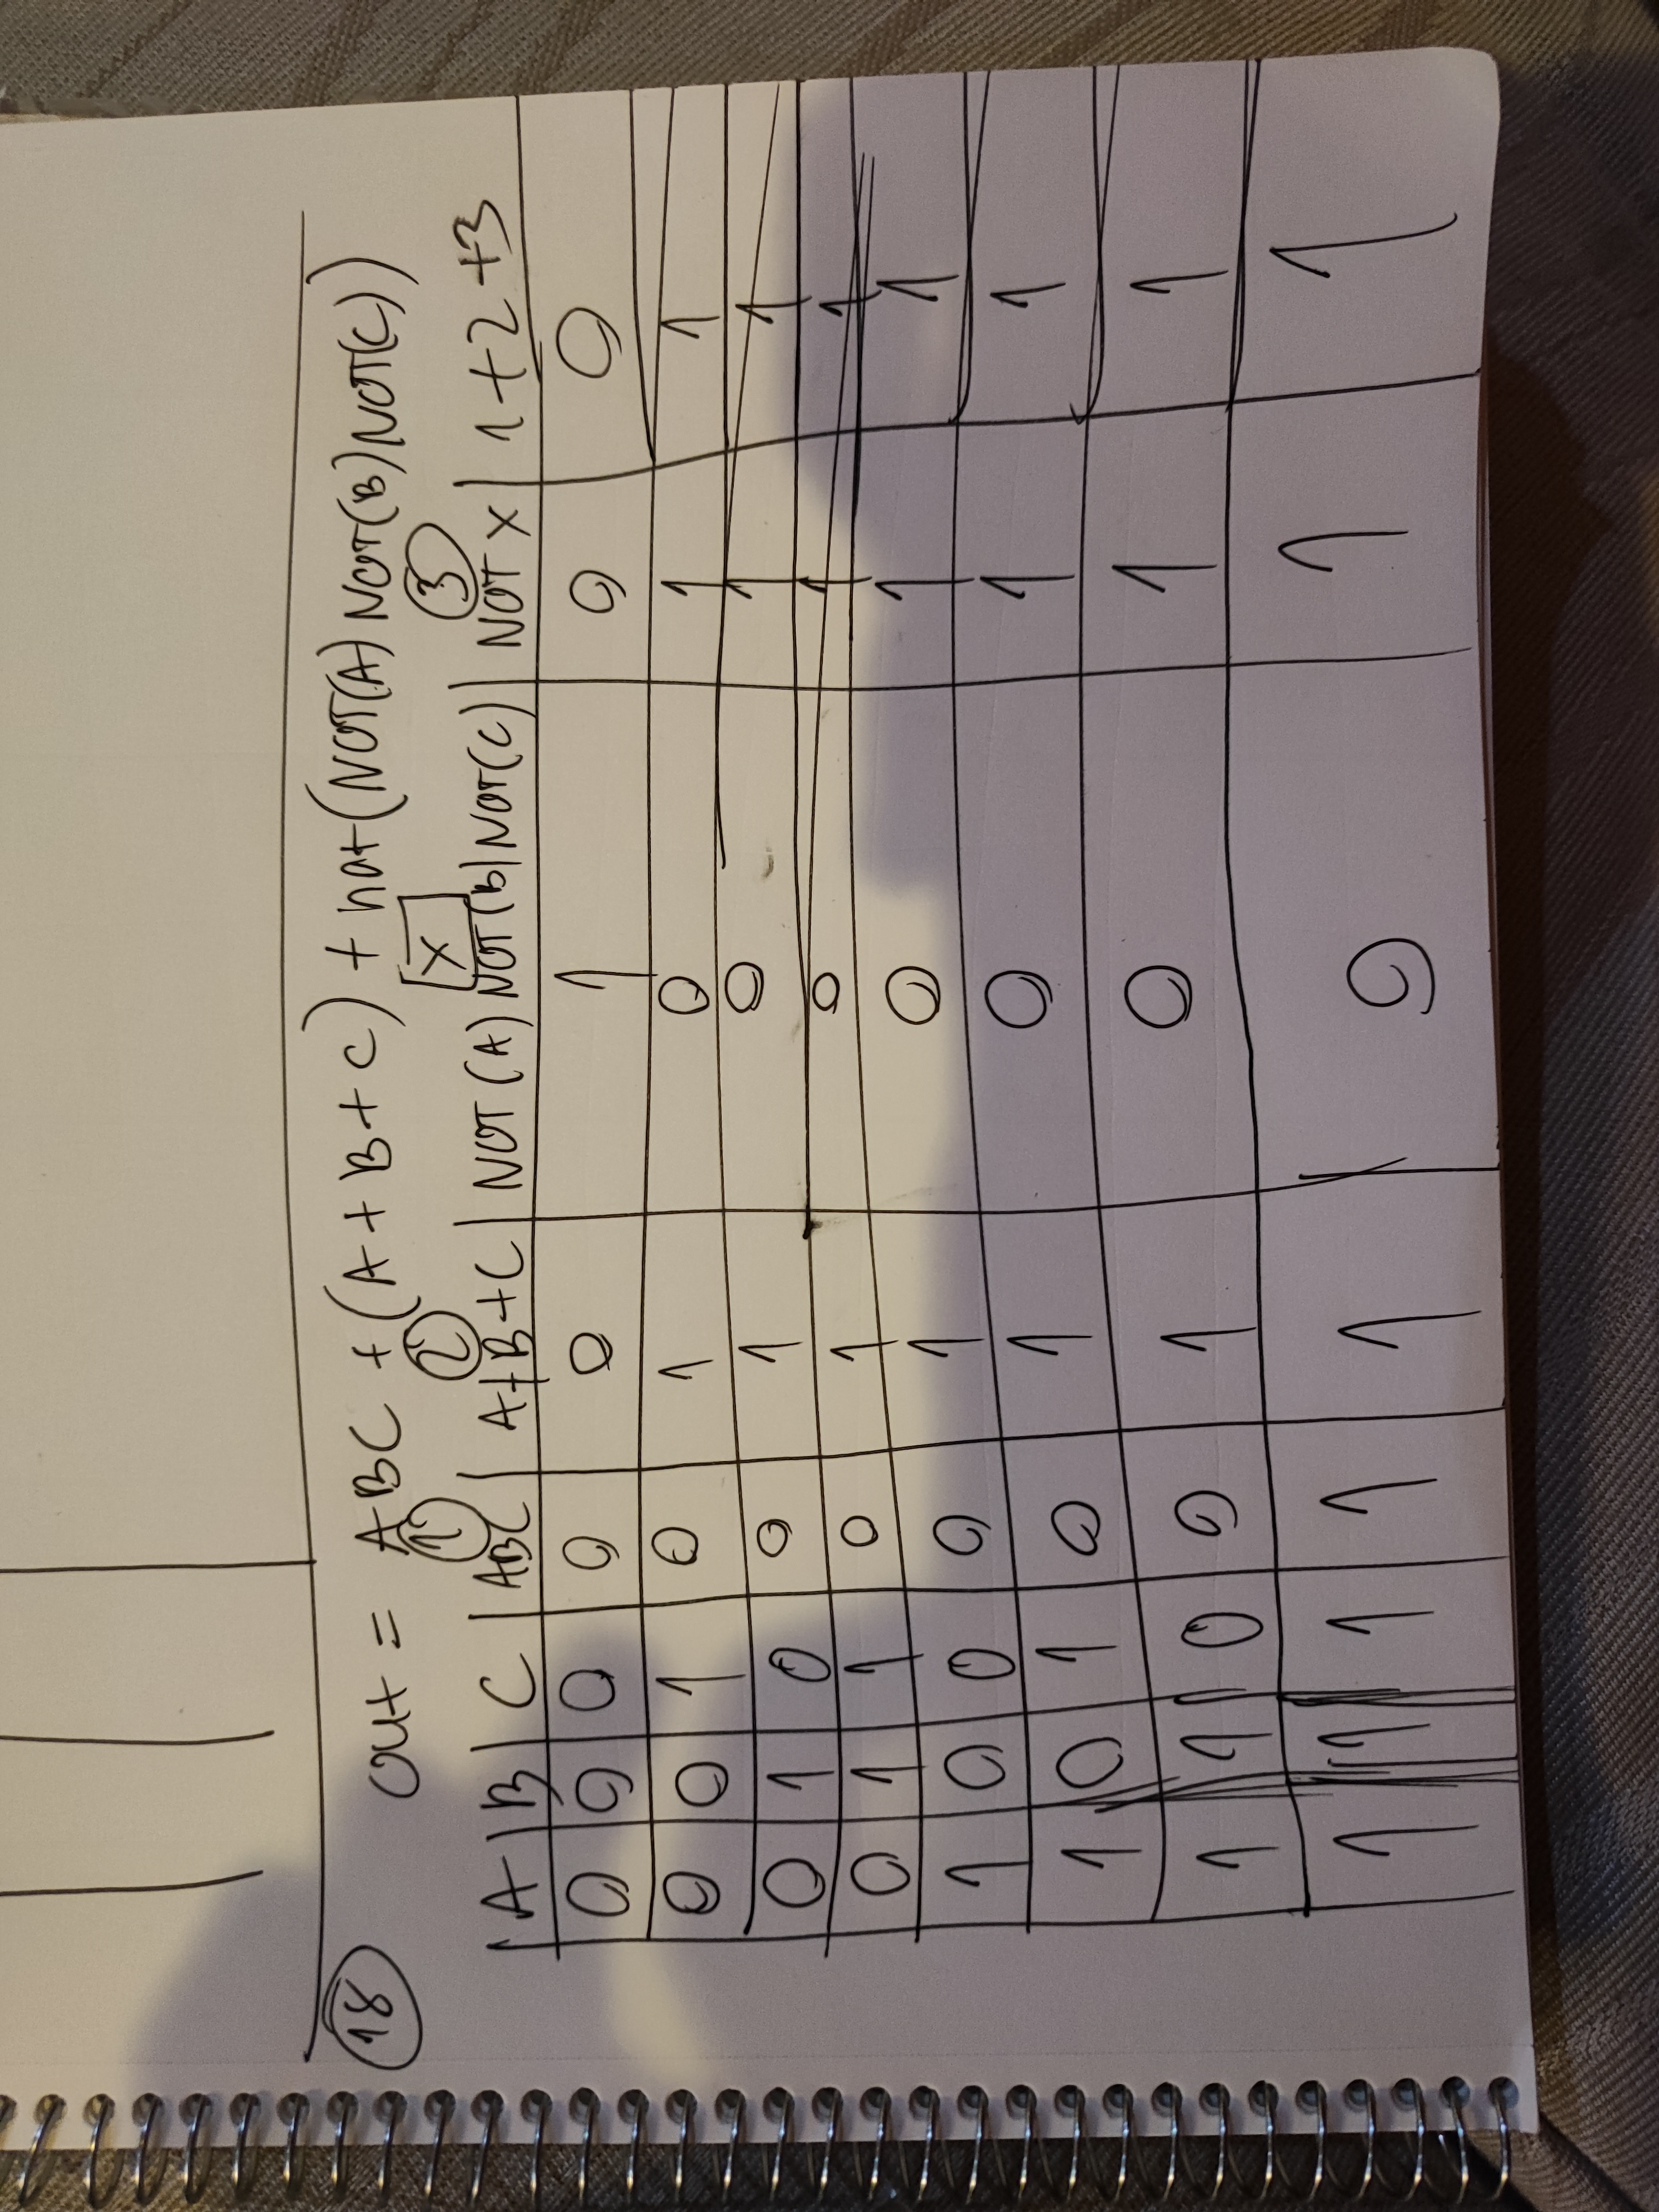 18 out = ABC + (A+B+C) + not(NOT(A)NOT(B)NOT(C))
1 2 X 3
A B C ABC A+B+C NOT(A)NOT(B)NOT(C) NOT X 1+2+3
0 0 0 0 0 1 0 0
0 0 1 0 1 0 1 1
0 1 0 0 1 0 1 1
0 1 1 0 1 0 1 1
1 0 0 0 1 0 1 1
1 0 1 0 1 0 1 1
1 1 0 0 1 0 1 1
1 1 1 1 1 0 1 1